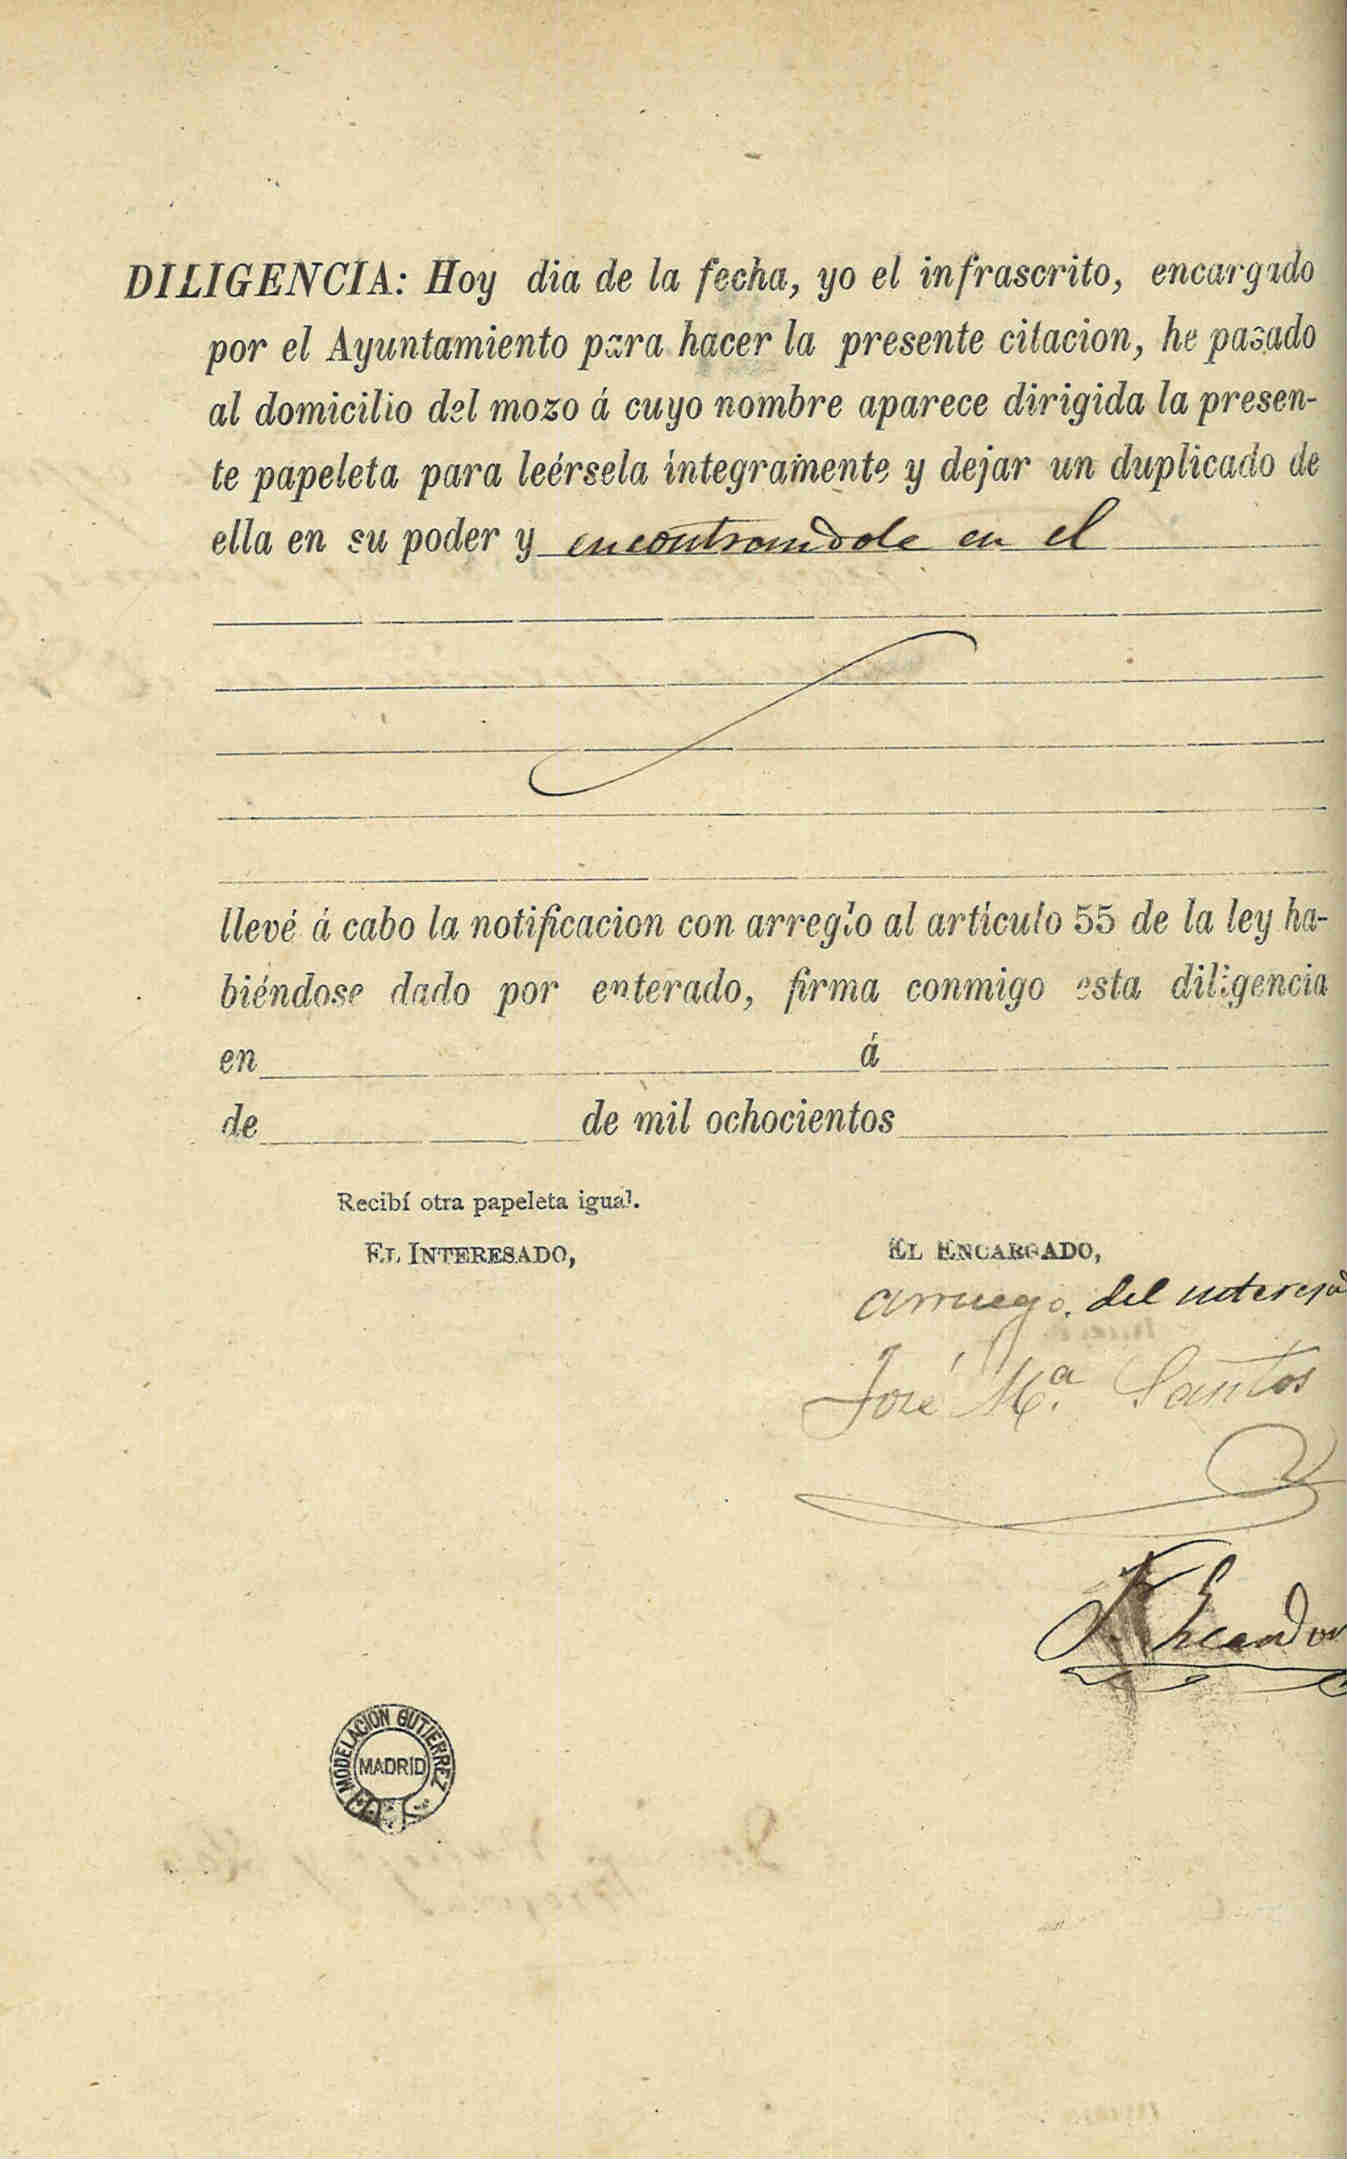 DILIGENCIA: Hoy dia de la fecha, yo el infrascrito, encargado
por el Ayuntamiento para hacer la presente citacion, he pasado
al domicilio del mozo á cuyo nombre aparece dirigida la presen-
te papeleta para leérsela integramente y dejar un duplicado de
ella en su poder y encontrandole en el
llevé á cabo la notificacion con arreglo al artículo 55 de la ley ha-
biéndose dado por enterado, firma conmigo esta diligencia
en á
de de mil ochocientos
Recibí otra papeleta igual.
EL INTERESADO,
EL ENCARGADO,
arruego del interesad
José Mª. Santos
MODELACION GUTIERREZ
MADRID